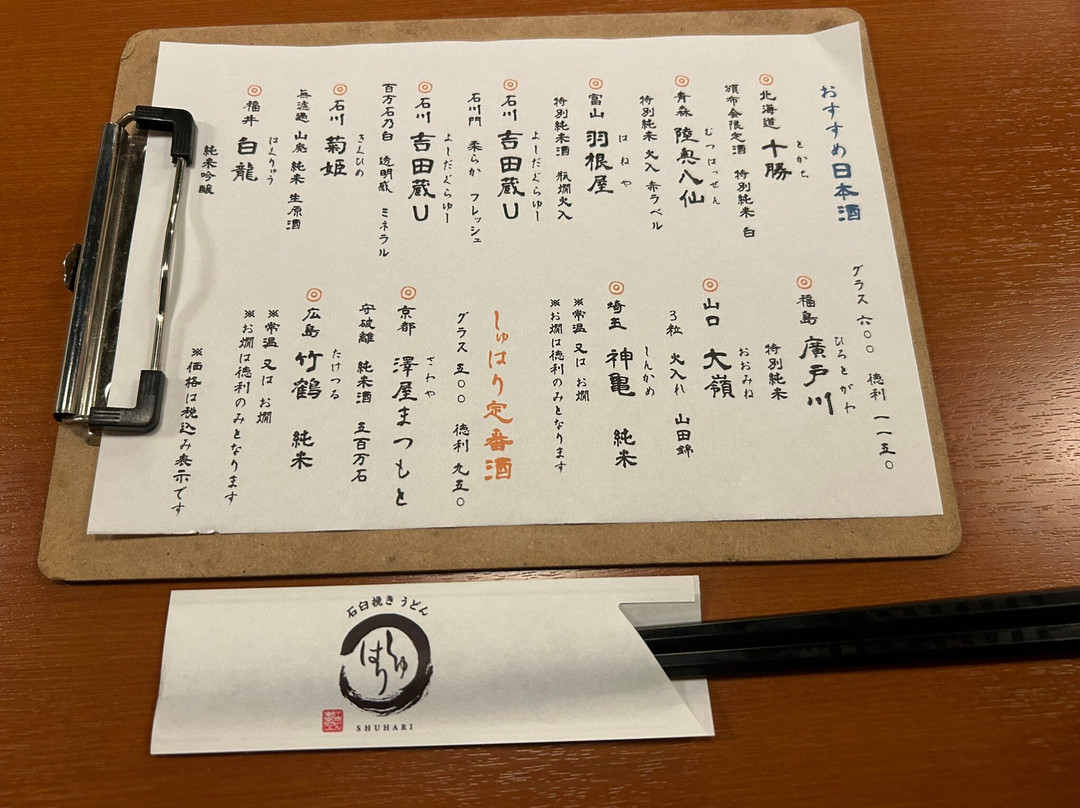 おすすめ日本酒
グラス 六〇〇 徳利 一一五〇
北海道 十勝
とかち
頒布会限定酒 特別純米 白
青森 陸奥八仙
むつはっせん
特別純米 火入 赤ラベル
富山 羽根屋
はねや
特別純米酒 瓶燗火入
石川 吉田蔵U
よしだぐらゆー
石川門 柔らか フレッシュ
石川 吉田蔵U
よしだぐらゆー
百万石乃白 透明感 ミネラル
石川 菊姫
きくひめ
無濾過 山廃 純米 生原酒
福井 白龍
はくりゅう
純米吟醸
福島 廣戸川
ひろとがわ
特別純米
山口 大嶺
おおみね
3粒 火入れ 山田錦
埼玉 神亀 純米
しんかめ
※常温 又は お燗
※お燗は徳利のみとなります
しゅはり定番酒
グラス 五〇〇 徳利 九五〇
京都 澤屋まつもと
さわや
守破離 純米酒 五百万石
広島 竹鶴 純米
たけつる
※常温 又は お燗
※お燗は徳利のみとなります
※価格は税込み表示です
石臼挽きうどん
しゅはり
SHUHARI